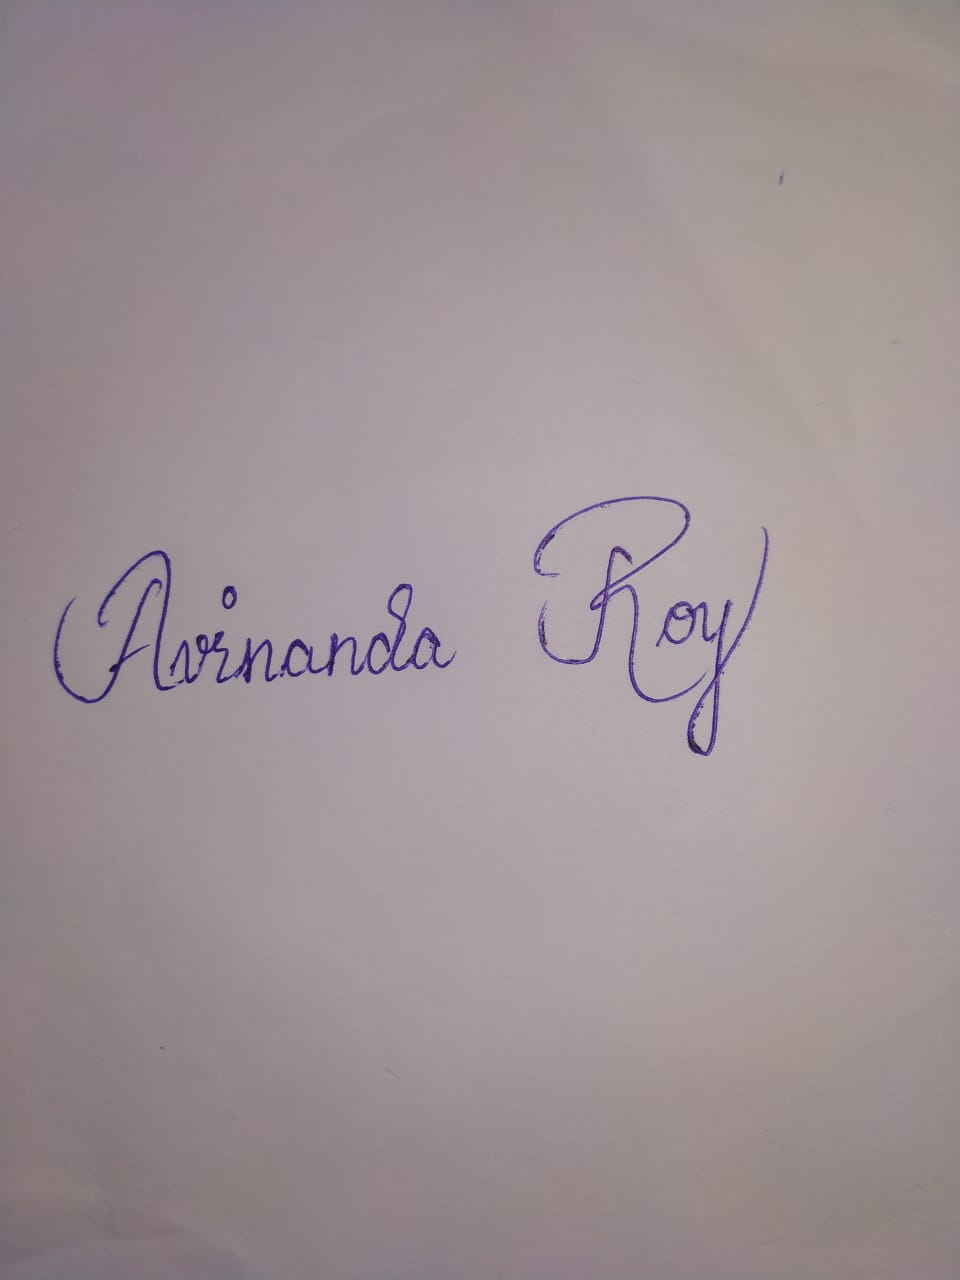 Avinanda Roy